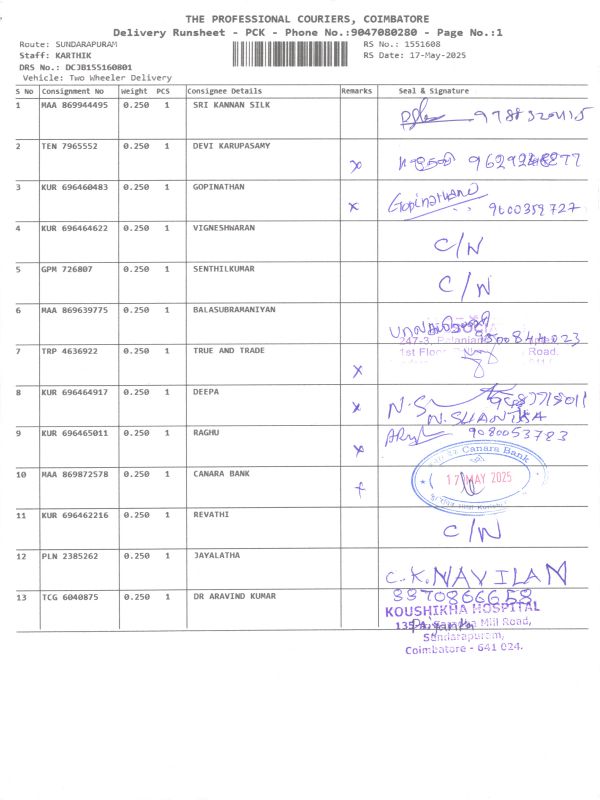 THE PROFESSIONAL COURIERS, COIMBATORE
Delivery Runsheet - PCK - Phone No.:9047080280 - Page No.:1
Route: SUNDARAPURAM RS No.: 1551608
Staff: KARTHIK RS Date: 17-May-2025
DRS No.: DCJB155160801
Vehicle: Two Wheeler Delivery
S No Consignment No Weight PCS Consignee Details Remarks Seal & Signature
1 MAA 869944495 0.250 1 SRI KANNAN SILK
2 TEN 7965552 0.250 1 DEVI KARUPASAMY x
3 KUR 696460483 0.250 1 GOPINATHAN x Gopinathan 9600359727
4 KUR 696464622 0.250 1 VIGNESHWARAN C/N
5 GPM 726807 0.250 1 SENTHILKUMAR C/N
6 MAA 869639775 0.250 1 BALASUBRAMANIYAN
247-3,
7 TRP 4636922 0.250 1 TRUE AND TRADE x 1st Floor Road,
8 KUR 696464917 0.250 1 DEEPA x
N.SHANIKA
9 KUR 696465011 0.250 1 RAGHU x 9080053783
10 MAA 869872578 0.250 1 CANARA BANK x Canara Bank
17 MAY 2025
11 KUR 696462216 0.250 1 REVATHI C/N
12 PLN 2385262 0.250 1 JAYALATHA C.K.NAVILAN
8870866658
13 TCG 6040875 0.250 1 DR ARAVIND KUMAR KOUSHIKHA HOSPITAL
Mill Road,
Sundarapuram,
Coimbatore - 641 024.